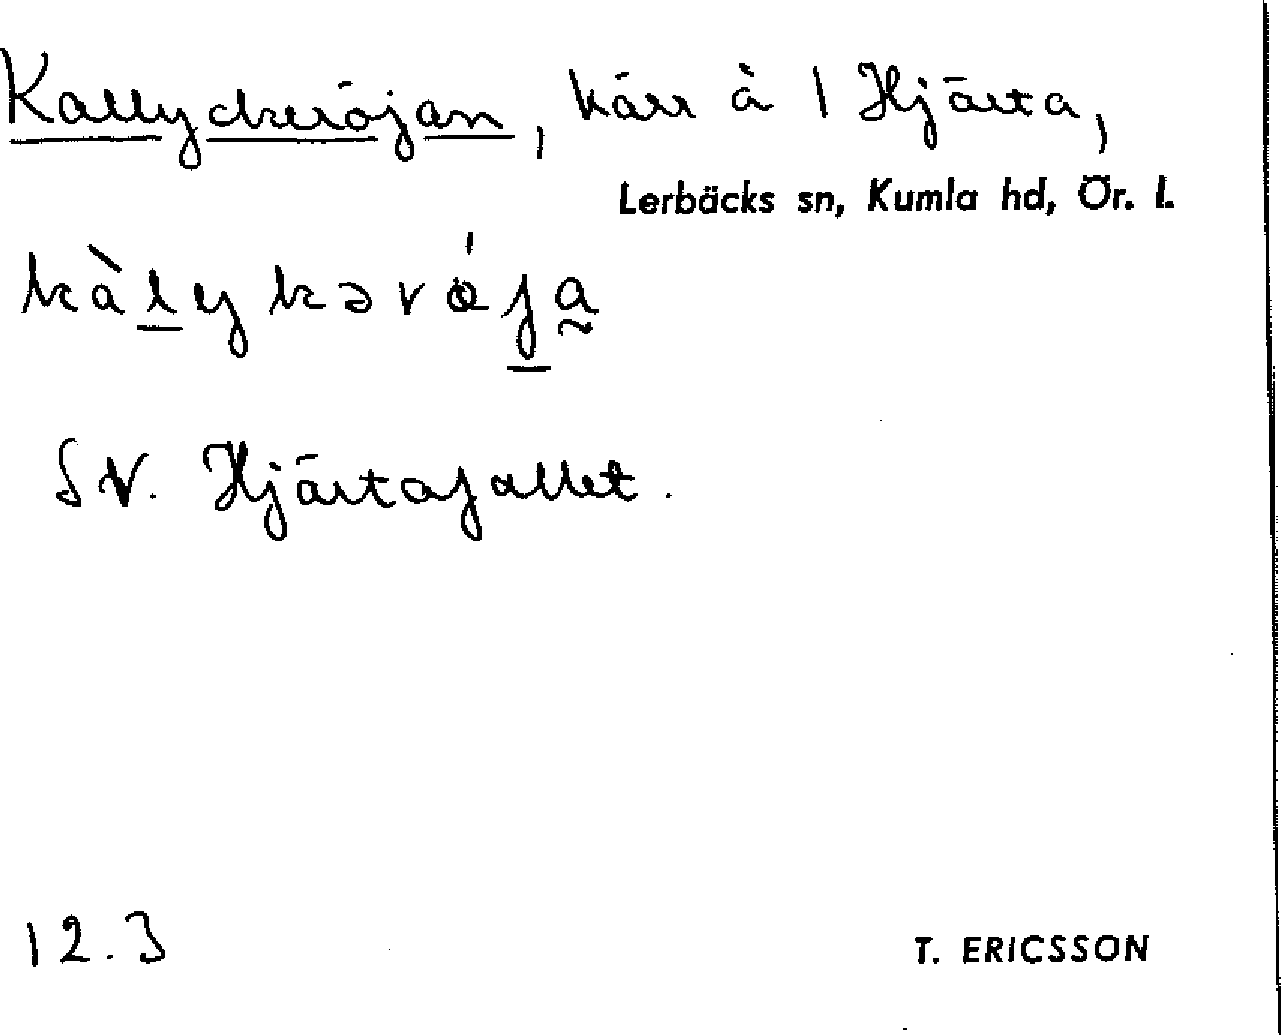 Kallyckeröjan, kärr å 1 Hjärta,
Lerbäcks sn, Kumla hd, Ör. l.
SV. Hjärtafallet.
12.3
T. ERICSSON